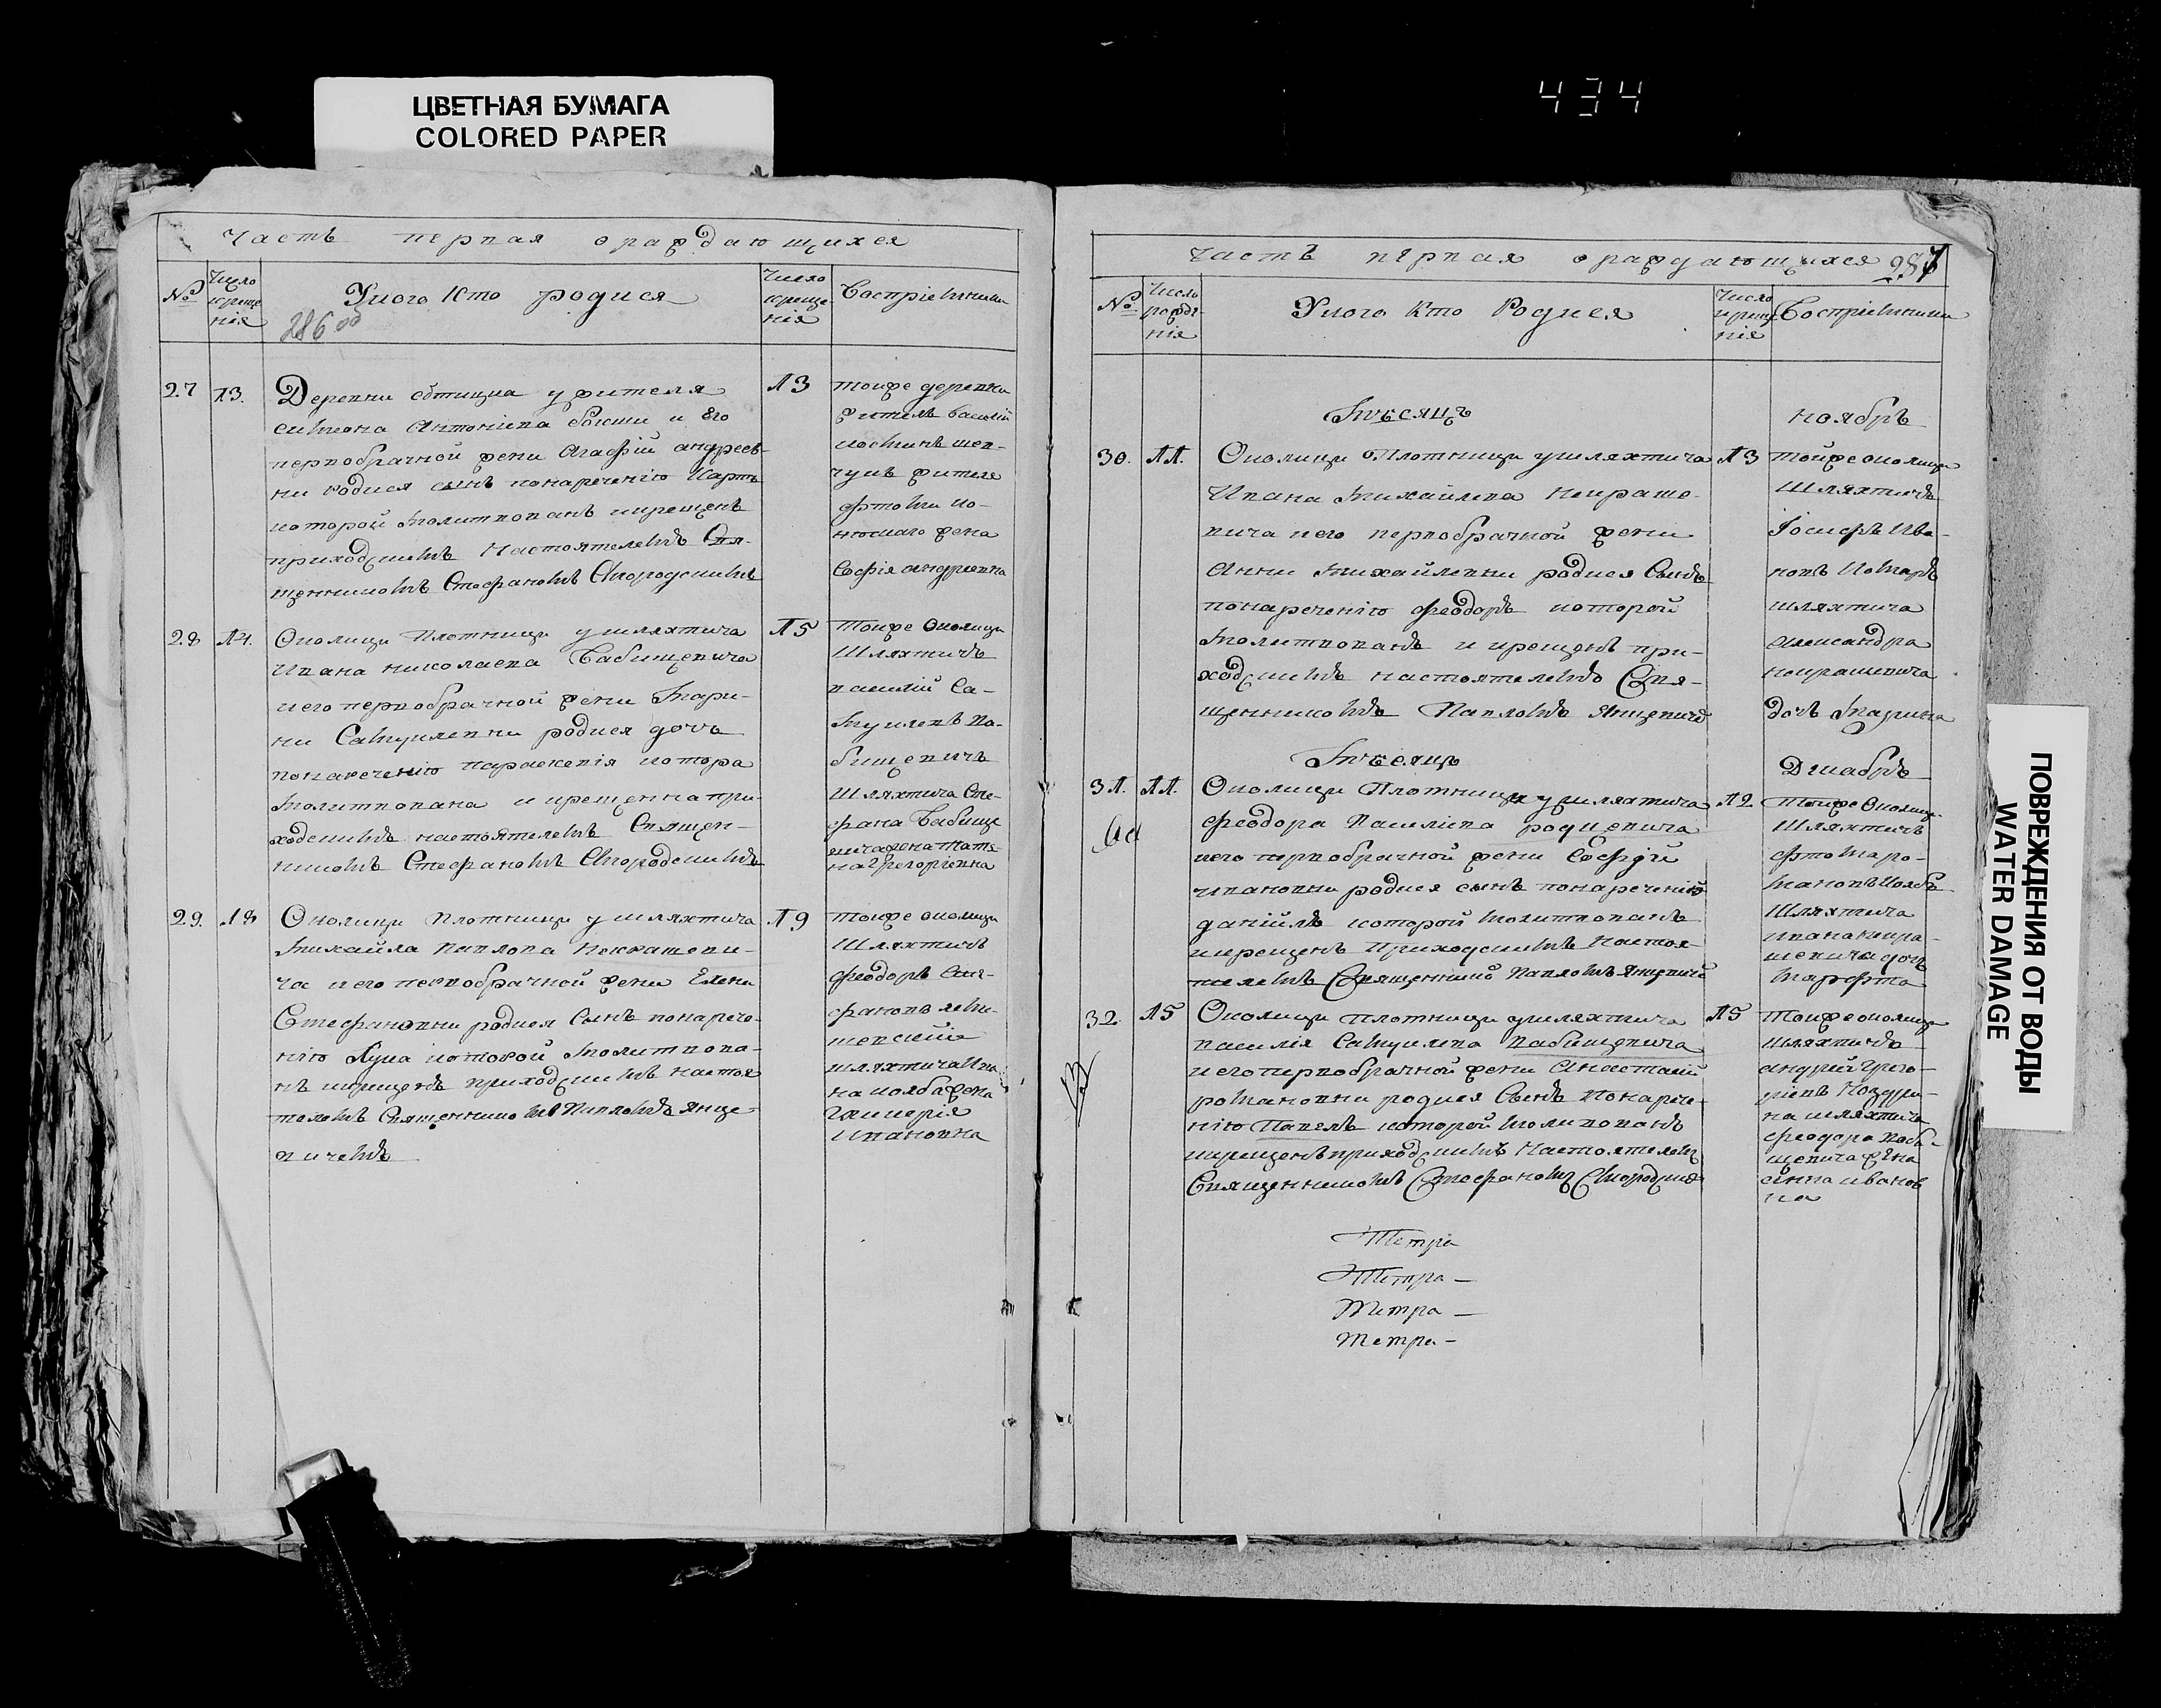 ЦВЕТНАЯ БУМАГА
COLORED PAPER
434
Часть первая ораждающихся
№
Число креще нія
Укого Кто родися
Число креще нія
Воспріемники
286 об
27
13.
Деревни
у жителя
Симеона Антоніева
и Его
первобрачной жени Агафіи андреев-
ни родися сынъ понареченію Карпъ
которой молитвованъ икрещенъ
приходскимъ Настоятелемъ Свя-
щенникомъ Стефаномъ
13
тоиже деревни
житель василій
жителе
жена
Софія андреевна
28
14.
Околици Плотници ушляхтича
Ивана николаева Бабищевича
иего первобрачной жени Мари-
ни Самуилевни родися дочь
понареченію параскевія котора
молитвована и крещенна при-
ходскимъ настоятелемъ Священ-
никомъ Стефаномъ
15
Тоиже Околици
Шляхтичъ
василій Са-
муилевъ Ба-
бищевичъ
Шляхтича Сте-
фана Бабище
вича жена Татя-
на Григоріевна
29.
18
Околици Плотници ушляхтича
Михайла Павлова Некрашеви-
ча иего первобрачной жени Елени
Стефановни родися Сынъ понарече-
нію Лука которой Молитвова-
нъ икрещенъ приходскимъ настоя
телемъ Священникомъ Павломъ Янце-
вичемъ
19
Тоиже околици
Шляхтичъ
феодоръ Сте-
фановъ
шляхтича Ива
на
жена
Гликерія
Ивановна
Часть первая ораждающихся
287
№
Число рожде- нія
Укого Кто Родися
Число креще нія
Воспріемники
Мѣсяцъ
ноябрь
30.
11.
Околици Плотници ушляхтича
Ивана Михайлева Некраше-
вича иего первобрачной жени
Анни Михайлевни родися Сынъ
понареченію феодоръ которой
Молитвованъ и крещенъ при-
ходскимъ настоятелемъ Свя-
щенникомъ Павломъ Янцевичемъ
13
тойже околици
Шляхтичъ
Іосифъ Ива-
новъ
шляхтича
Александра
некрашевича
дочь Марина
Мѣсяцъ
Декабрь
31.
11.
Околици Плотници ушляхтича
феодора Василіева родцевича
иего первобрачной жени Софіи
ивановни родися сынъ понареченію
даніилъ которой молитвованъ
икрещенъ Приходскимъ Настоя-
телемъ Священникомъ Павломъ Янцевичемъ
12
Тоиже Околици
Шляхтичъ
Шляхтича
ивана некра-
шевича дочь
Марфта
32.
15
Околици плотници ушляхтича
василія Самуилева Бабищевича
иего первобрачной жени Анастасіи
романовни родися Сынъ Понарече-
нію Павелъ которой молитвованъ
икрещенъ приходскимъ Настоятелемъ
Священникомъ Стефаномъ
15
Тоиже околици
шляхтичъ
андрей Григо-
ріевъ
шляхтича
феодора Баби-
щевича жена
Анна иванов
на
Метра
Метра —
Метра —
Метра —
ПОВРЕЖДЕНИЯ ОТ ВОДЫ
WATER DAMAGE